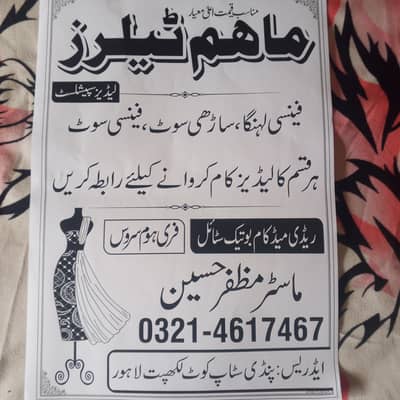 مناسب قیمت اعلیٰ معیار
ماهم ٹیلرز
لیڈیز سپیشلسٹ
فینسی لہنگا، ساڑھی سوٹ، فینسی سوٹ
ہر قسم کا لیڈیز کام کروانے کیلئے رابطہ کریں
ریڈی میڈ کام بوتیک سٹائل
فری ہوم سروس
ماسٹر مظفر حسین
0321-4617467
ایڈریس: پنڈی سٹاپ کوٹ لکھپت لاہور